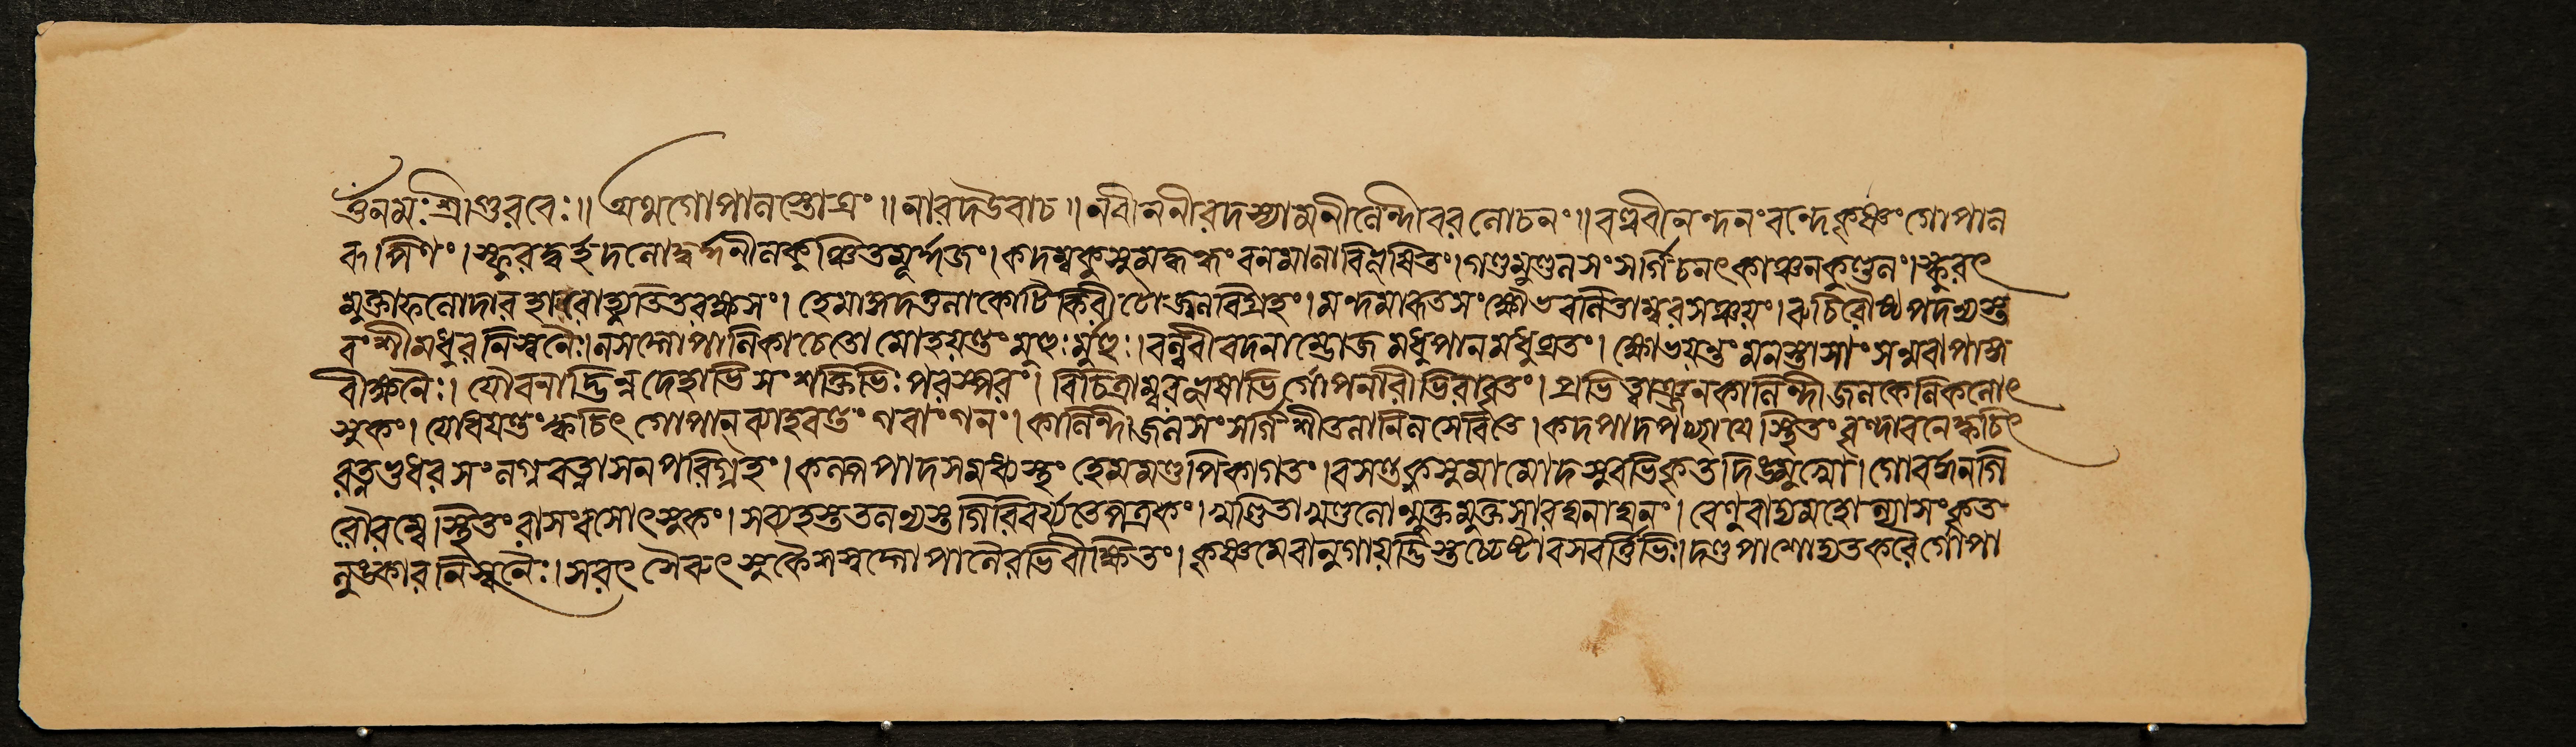 ওঁনমঃশ্রীগুরবেঃ॥ অথগোপালস্তোত্রং॥ নারদউবাচ॥ নবীননীরদশ্যামনীলেন্দীবরলোচনং॥ বল্লবীনন্দনংবন্দেকৃষ্ণংগোপাল
রূপিণং। স্ফুরদ্বর্হদলোদ্বর্দ্দনীলকুঞ্চিতমূর্দ্দজং। কদম্বকুসুমদ্বদ্ধংবনমালাবিলম্বিতং। গণ্ডমুণ্ডলসংসর্গিচলৎকাঞ্চনকুণ্ডলং। স্ফুরৎ
মুক্তাফলোদারহারোদ্যুতিতবক্ষসং। হেমাঙ্গদতুলাকোটিকিরীটোজ্বলবিগ্রহং। মন্দমারুতসংক্ষোভবলিতাম্বরসঞ্চয়ং। রুচিরৌষ্ঠপদন্যস্ত
বংশীমধুরনিস্বনৈঃ। লসদ্গোপালিকাচেতোমোহয়ন্তংমুহুঃর্মুহুঃ। বল্লবীবদনাম্ভোজমধুপানমধুব্রতং। ক্ষোভয়ন্তংমনস্তাসাংসস্মরাপাঙ্গ
বীক্ষনৈঃ। যৌবনাদ্ভিন্নদেহাভিসংশক্তিভিঃপরস্পরং। বিচিত্রাম্বরভূষাভির্গোপনারীভিরাবৃতং। প্রভিন্নাঞ্জনকালিন্দীজলকেলিকলোৎ
সুকং। যোধয়ন্তংক্বচিৎগোপানব্যাহরন্তংগবাংগনং। কালিন্দীজলসংসর্গিশীতলানিলসেবিতে। কদপাদপছায়ে। স্থিতংবৃন্দাবনেক্বচিৎ
রত্নভুধরসংলগ্নরত্নাসনপরিগ্রহং। কল্পপাদসমধ্যস্থংহেমমণ্ডপিকাগতং। বসন্তকুসুমামোদসুরভিকৃতদিঙমুখে। গোবর্দ্ধনগি
রৌরম্যে। স্থিতংরাসংরসোৎসুকং। সব্যহস্ততলন্যস্তগিরিবর্য্যতেপত্রকং। খণ্ডিতাখণ্ডলোন্মুক্তমুক্তসারঘনাঘনং। বেণুবাদ্যমহোল্লাসংকৃত
নুঙ্কারনিস্বনৈঃ। সবৎসৈরুৎসুকৈঃশশ্বদ্গোপালৈরভিবীক্ষিতং। কৃষ্ণমেবানুগায়দ্ভিস্তচ্চেষ্টাবসবর্ত্তিভিঃ। দণ্ডপাশোদ্যতকরৈর্গোপা